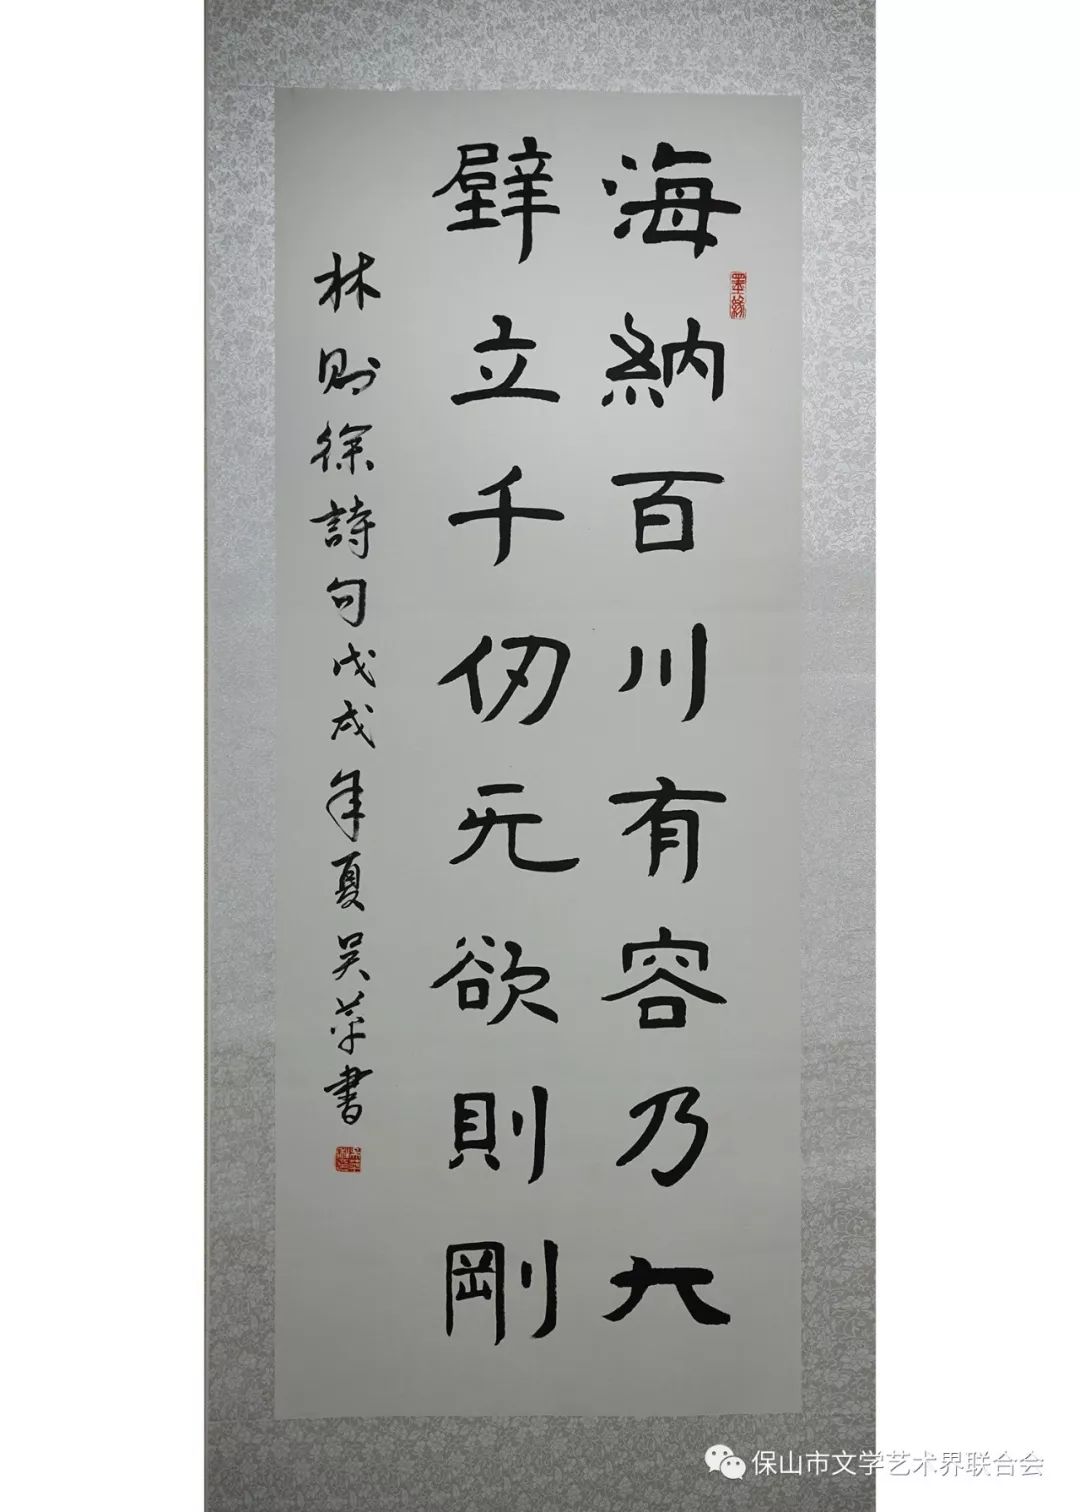 海納百川有容乃大
壁立千仞无欲則剛
林则徐詩句戊戌年夏吴萍書
墨緣
保山市文学艺术界联合会